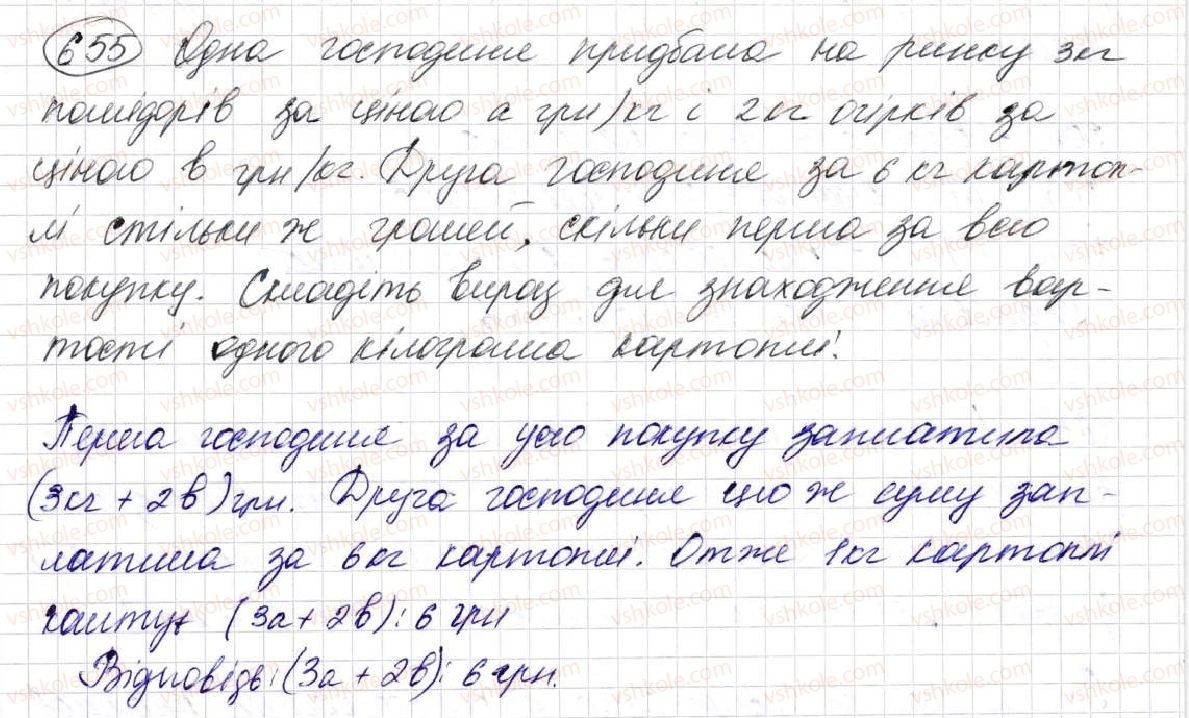 655 Одна господиня придбала на ринку 3кг
помідорів за ціною а грн/кг і 2кг огірків за
ціною в грн/кг. Друга господиня за 6 кг картоп-
лі стільки ж грошей, скільки перша за всю
покупку. Складіть вираз для знаходження вар-
тості одного кілограма картоплі.
Перша господиня за усю покупку заплатила
(3кг + 2в) грн. Друга господиня цю ж суму зап-
латила за 6кг картоплі. Отже 1кг картоплі
кошту (3а + 2в) : 6 грн
Відповідь: (3а + 2в) : 6 грн.